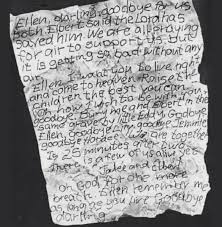 Ellen, darling, goodbye for us
both. Elbert said the Lord has
saved him. We are all praying
for air to support us, but
it is getting so bad without any
air.
I want you to live right
and come to heaven. Raise the
children the best you can.
Oh how I wish to be with
you, goodbye. Bury me and Elbert in the
same grave by little Eddy. Goodbye
Ellen, goodbye Lily, goodbye Jemmie,
goodbye Horace. We are together.
Is 25 minutes after two.
There is a few of us alive yet.
Jake and Elbert
Oh God for one more
breath. Ellen remember me
as long as you live Goodbye
darling